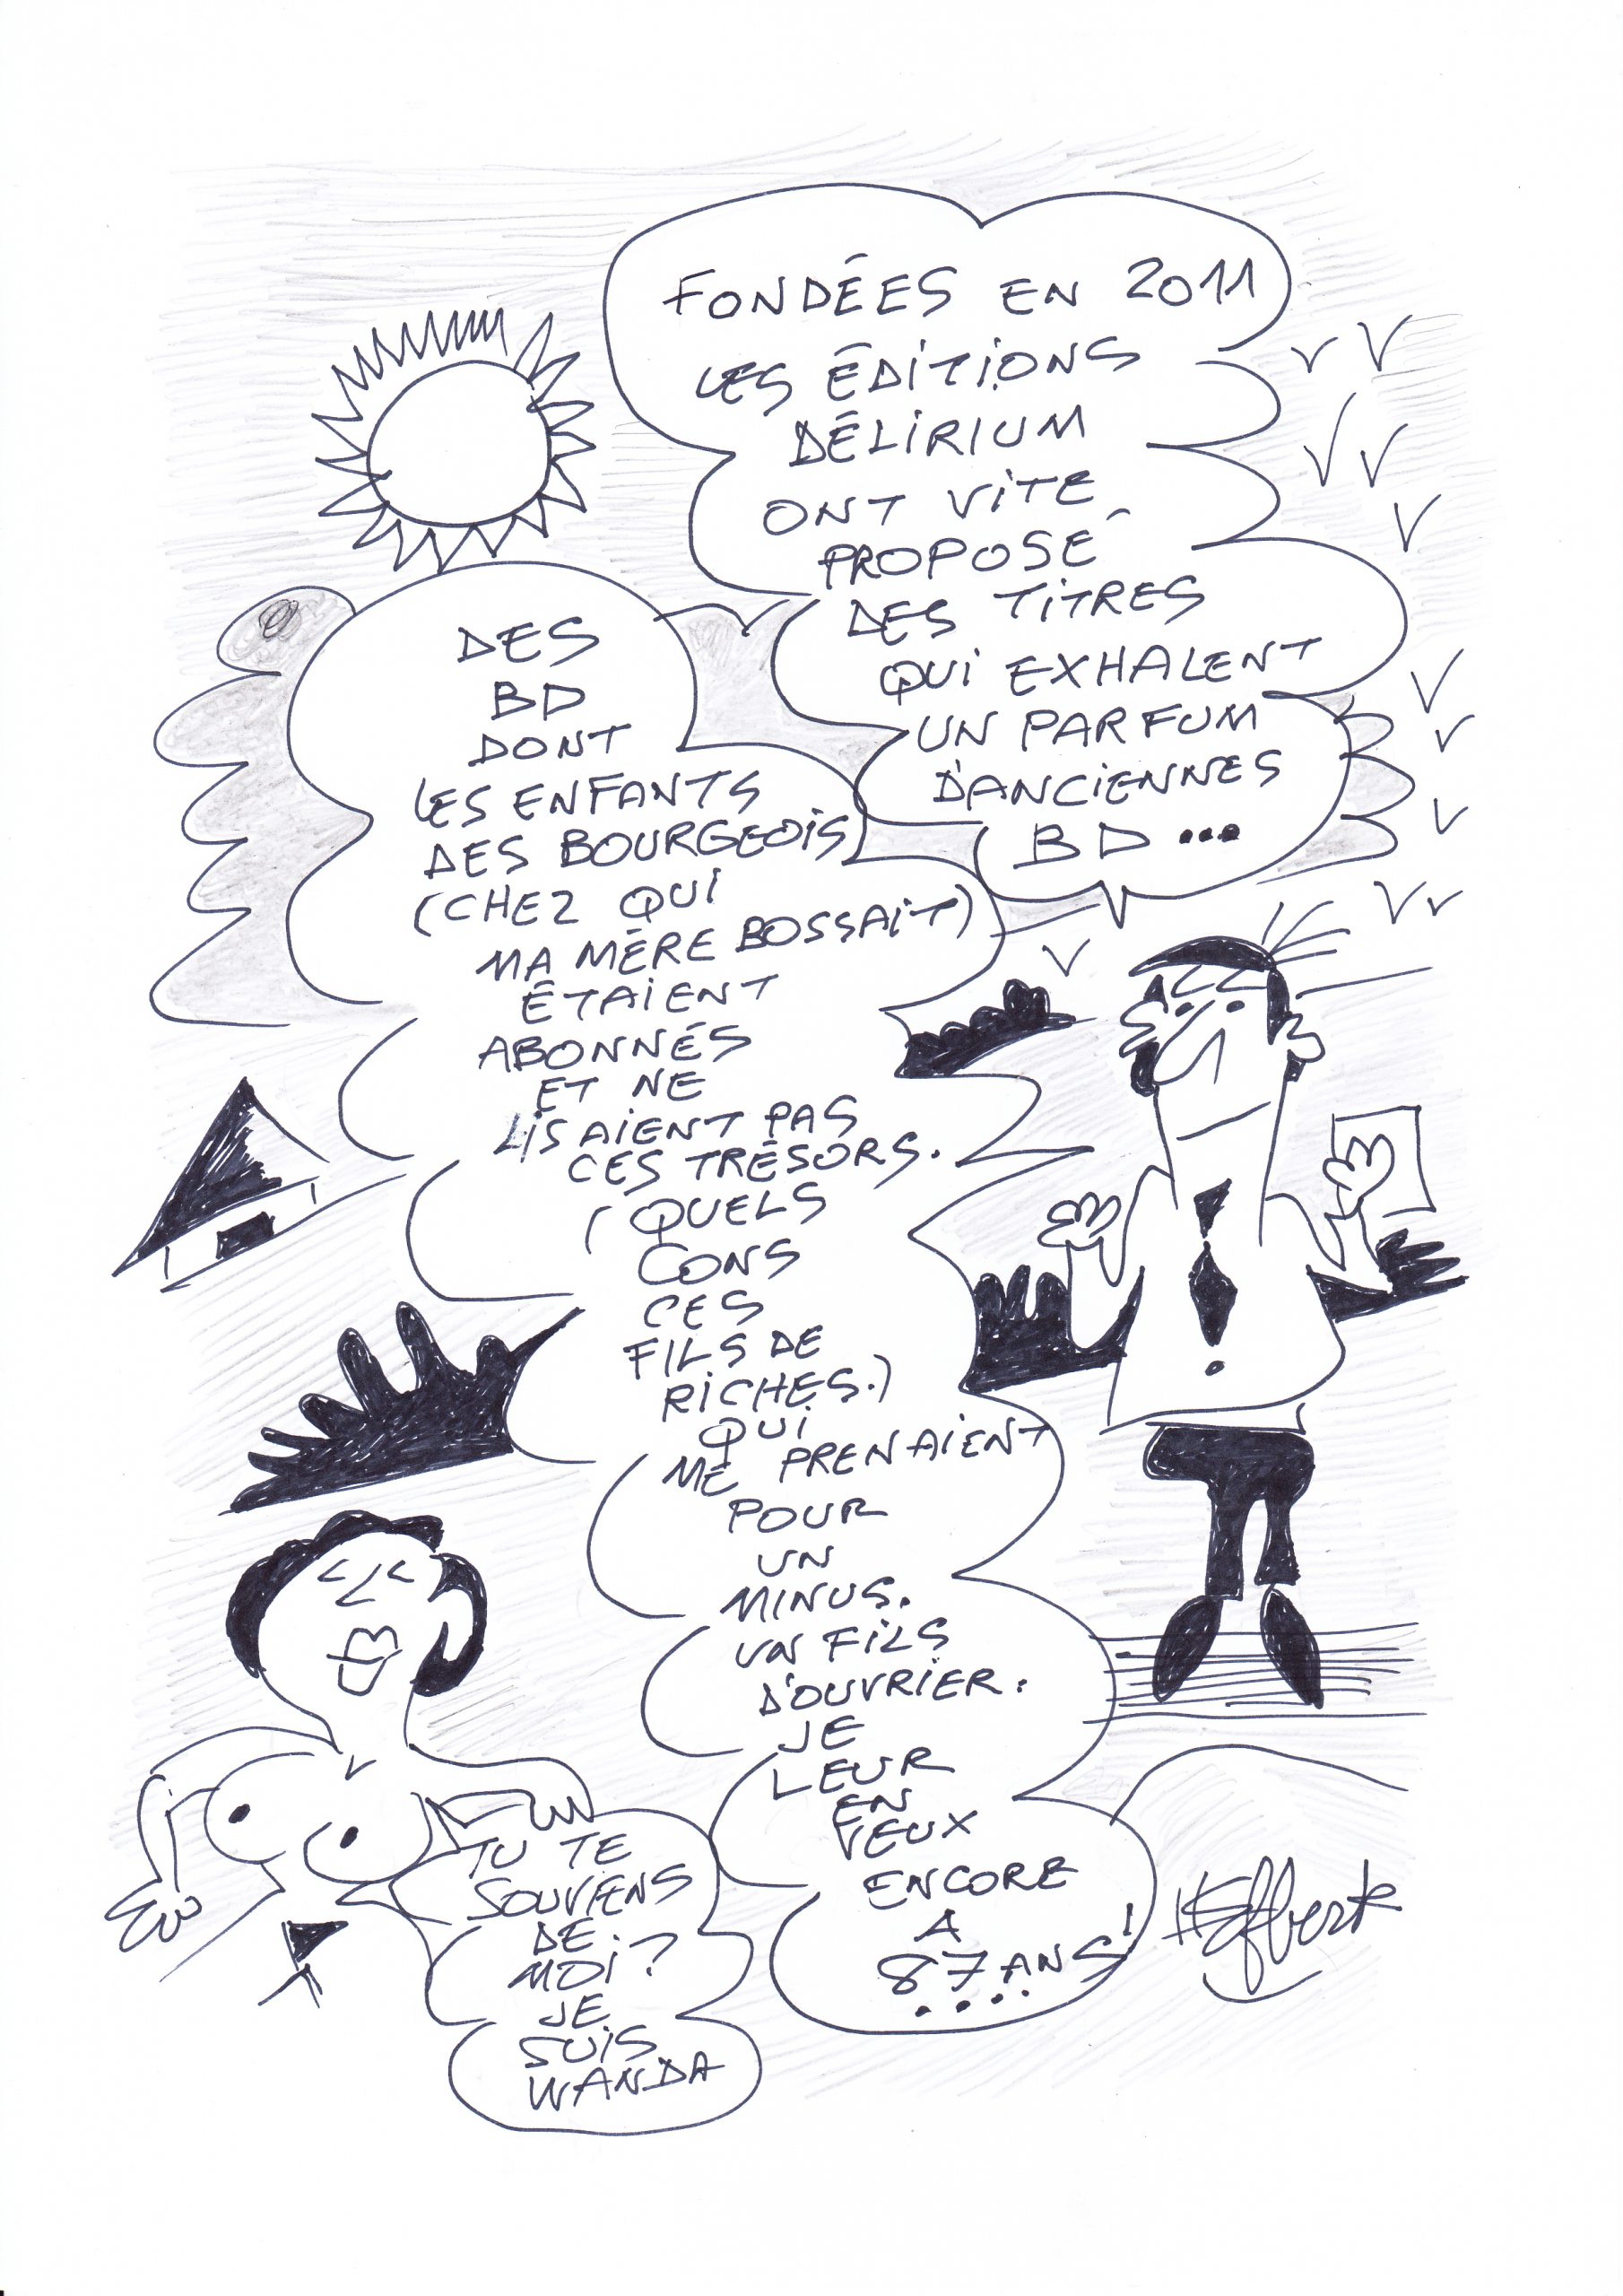 FONDÉES EN 2011
LES ÉDITIONS
DÉLIRIUM
ONT VITE
PROPOSÉ
DES TITRES
QUI EXHALENT
UN PARFUM
D'ANCIENNES
BD...
DES
BD
DONT
LES ENFANTS
DES BOURGEOIS
(CHEZ QUI
MA MÈRE BOSSAIT)
ÉTAIENT
ABONNÉS
ET NE
LISAIENT PAS
CES TRÉSORS.
(QUELS
CONS
CES
FILS DE
RICHES.)
QUI
ME PRENAIENT
POUR
UN
MINUS.
UN FILS
D'OUVRIER.
JE
LEUR
EN
VEUX
ENCORE
A
87 ANS!
....
TU TE
SOUVIENS
DE
MOI?
JE
SUIS
WANDA